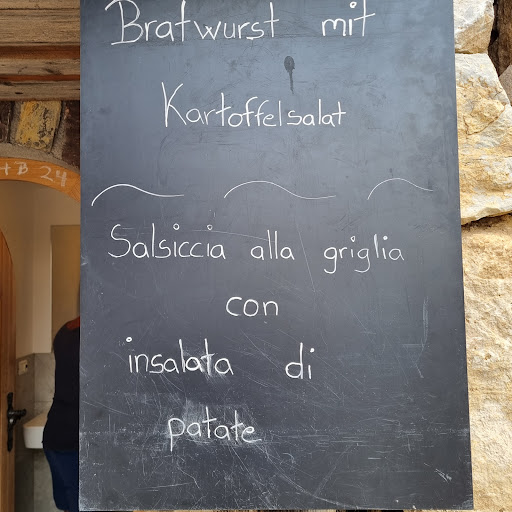 Bratwurst mit
Kartoffelsalat
Salsiccia alla griglia
con
insalata di
patate
B 24